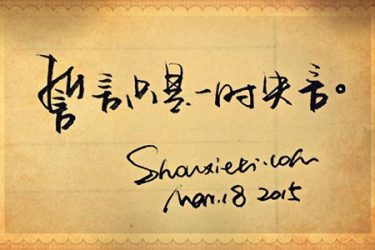 誓言只是一时失言。
Shouxieti.com
Mar.18 2015